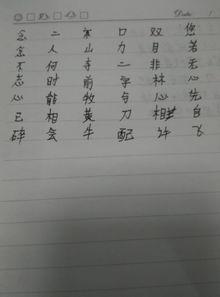 Date
念 二 寒 口 双 您
念 人 山 力 目 若
不 何 寺 二 非 无
志 时 前 学 林 心
心 能 牧 与 心 先
已 相 黄 刀 相 自
碎 会 牛 配 许 飞